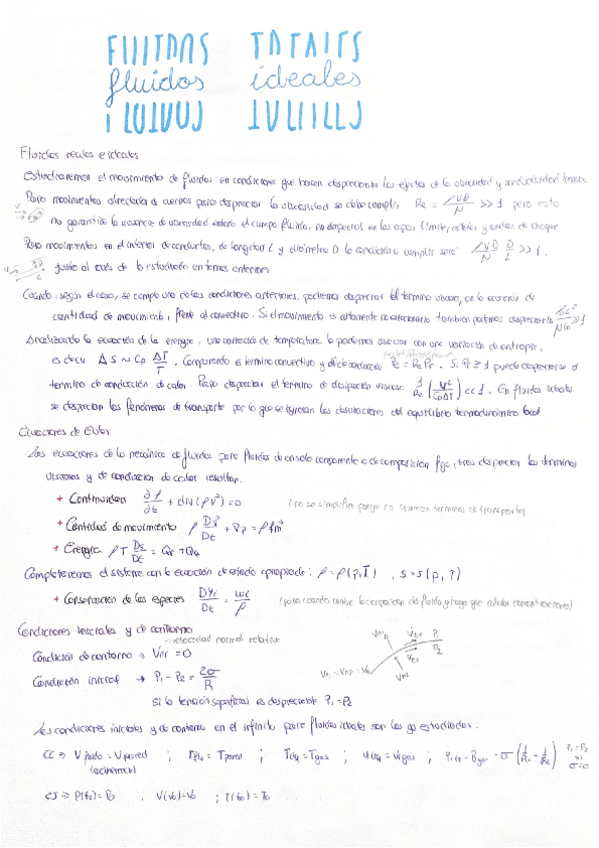 fluidos ideales
Fluidos reales e ideales
Estudiaremos el movimiento de fluidos en condiciones que hacen despreciables los efectos de la viscosidad y conductividad térmica
Para movimientos alrededor de cuerpos para despreciar la viscosidad se debe cumplir Re = LVρ/μ >> 1 pero esto
no garantiza la ausencia de viscosidad en todo el campo fluido, en especial en las capas límite, estelas y ondas de choque
Para movimientos en el interior de conductos, de longitud L y diámetro D la condición a cumplir será LVD/μ D/L >> 1.
justo al revés de lo estudiado en temas anteriores
Cuando, según el caso, se cumpla una de las condiciones anteriores, podremos despreciar el termino viscoso, de la ecuación de
cantidad de movimiento, frente al convectivo. Si el movimiento es altamente no estacionario también podremos despreciarlo
Analizando la ecuación de la energía, una variación de temperatura la podemos asociar con una variación de entropía,
es decir ΔS ~ Cp ΔT/T. Comparando el termino convectivo y el de conducción Pe = Re Pr. Si Pr ≥ 1 puede despreciarse el
termino de conducción de calor. Para despreciar el termino de disipación viscosa 1/Re (V²/CpΔT) << 1. En fluidos ideales
se desprecian los fenómenos de transporte por lo que se ignoran las desviaciones del equilibrio termodinámico local
Ecuaciones de Euler
Las ecuaciones de la mecánica de fluidos para fluidos de un solo componente o de composición fija, tras despreciar los términos
viscosos y de conducción de calor resultan.
+ Continuidad ∂ρ/∂t + div(ρv⃗) = 0 (no se simplifica porque no aparecen terminos de transporte)
+ Cantidad de movimiento ρ Dv⃗/Dt + ∇p = ρf⃗m
+ Energía ρT Ds/Dt = Qr + Qq
Completaremos el sistema con la ecuación de estado apropiada: ρ = ρ(p,T) , s = s(p, T)
+ Conservación de las especies DYi/Dt = wi/ρ
Condiciones iniciales y de contorno
velocidad normal relativa
Condición de contorno → Vnr = 0
Condición inicial → P₁ - P₂ = 2σ/R
Si la tensión superficial es despreciable P₁ = P₂
Las condiciones iniciales y de contorno en el infinito para fluidos ideales son las ya estudiadas:
CC ⇒ V fluido = V pared ; Tflu = Tpared ; Tliq = Tgas ; Vliq = Vgas ;
CI ⇒ P(t₀) = P₀ , V(t₀) = V₀ ; T(t₀) = T₀ ...